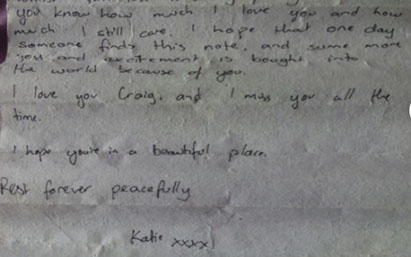 you know how much I love you and how
much I still care. I hope that one day
someone finds this note, and some more
joy and excitement is bought into
the world because of you.
I love you Craig, and I miss you all the
time.
I hope you're in a beautiful place.
Rest forever peacefully
Katie xxxx